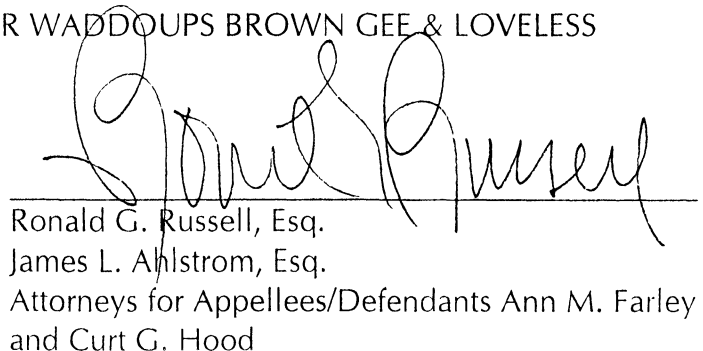 R WADDOUPS BROWN GEE & LOVELESS
Ronald G. Russell
Ronald G. Russell, Esq.
James L. Ahlstrom, Esq.
Attorneys for Appellees/Defendants Ann M. Farley
and Curt G. Hood